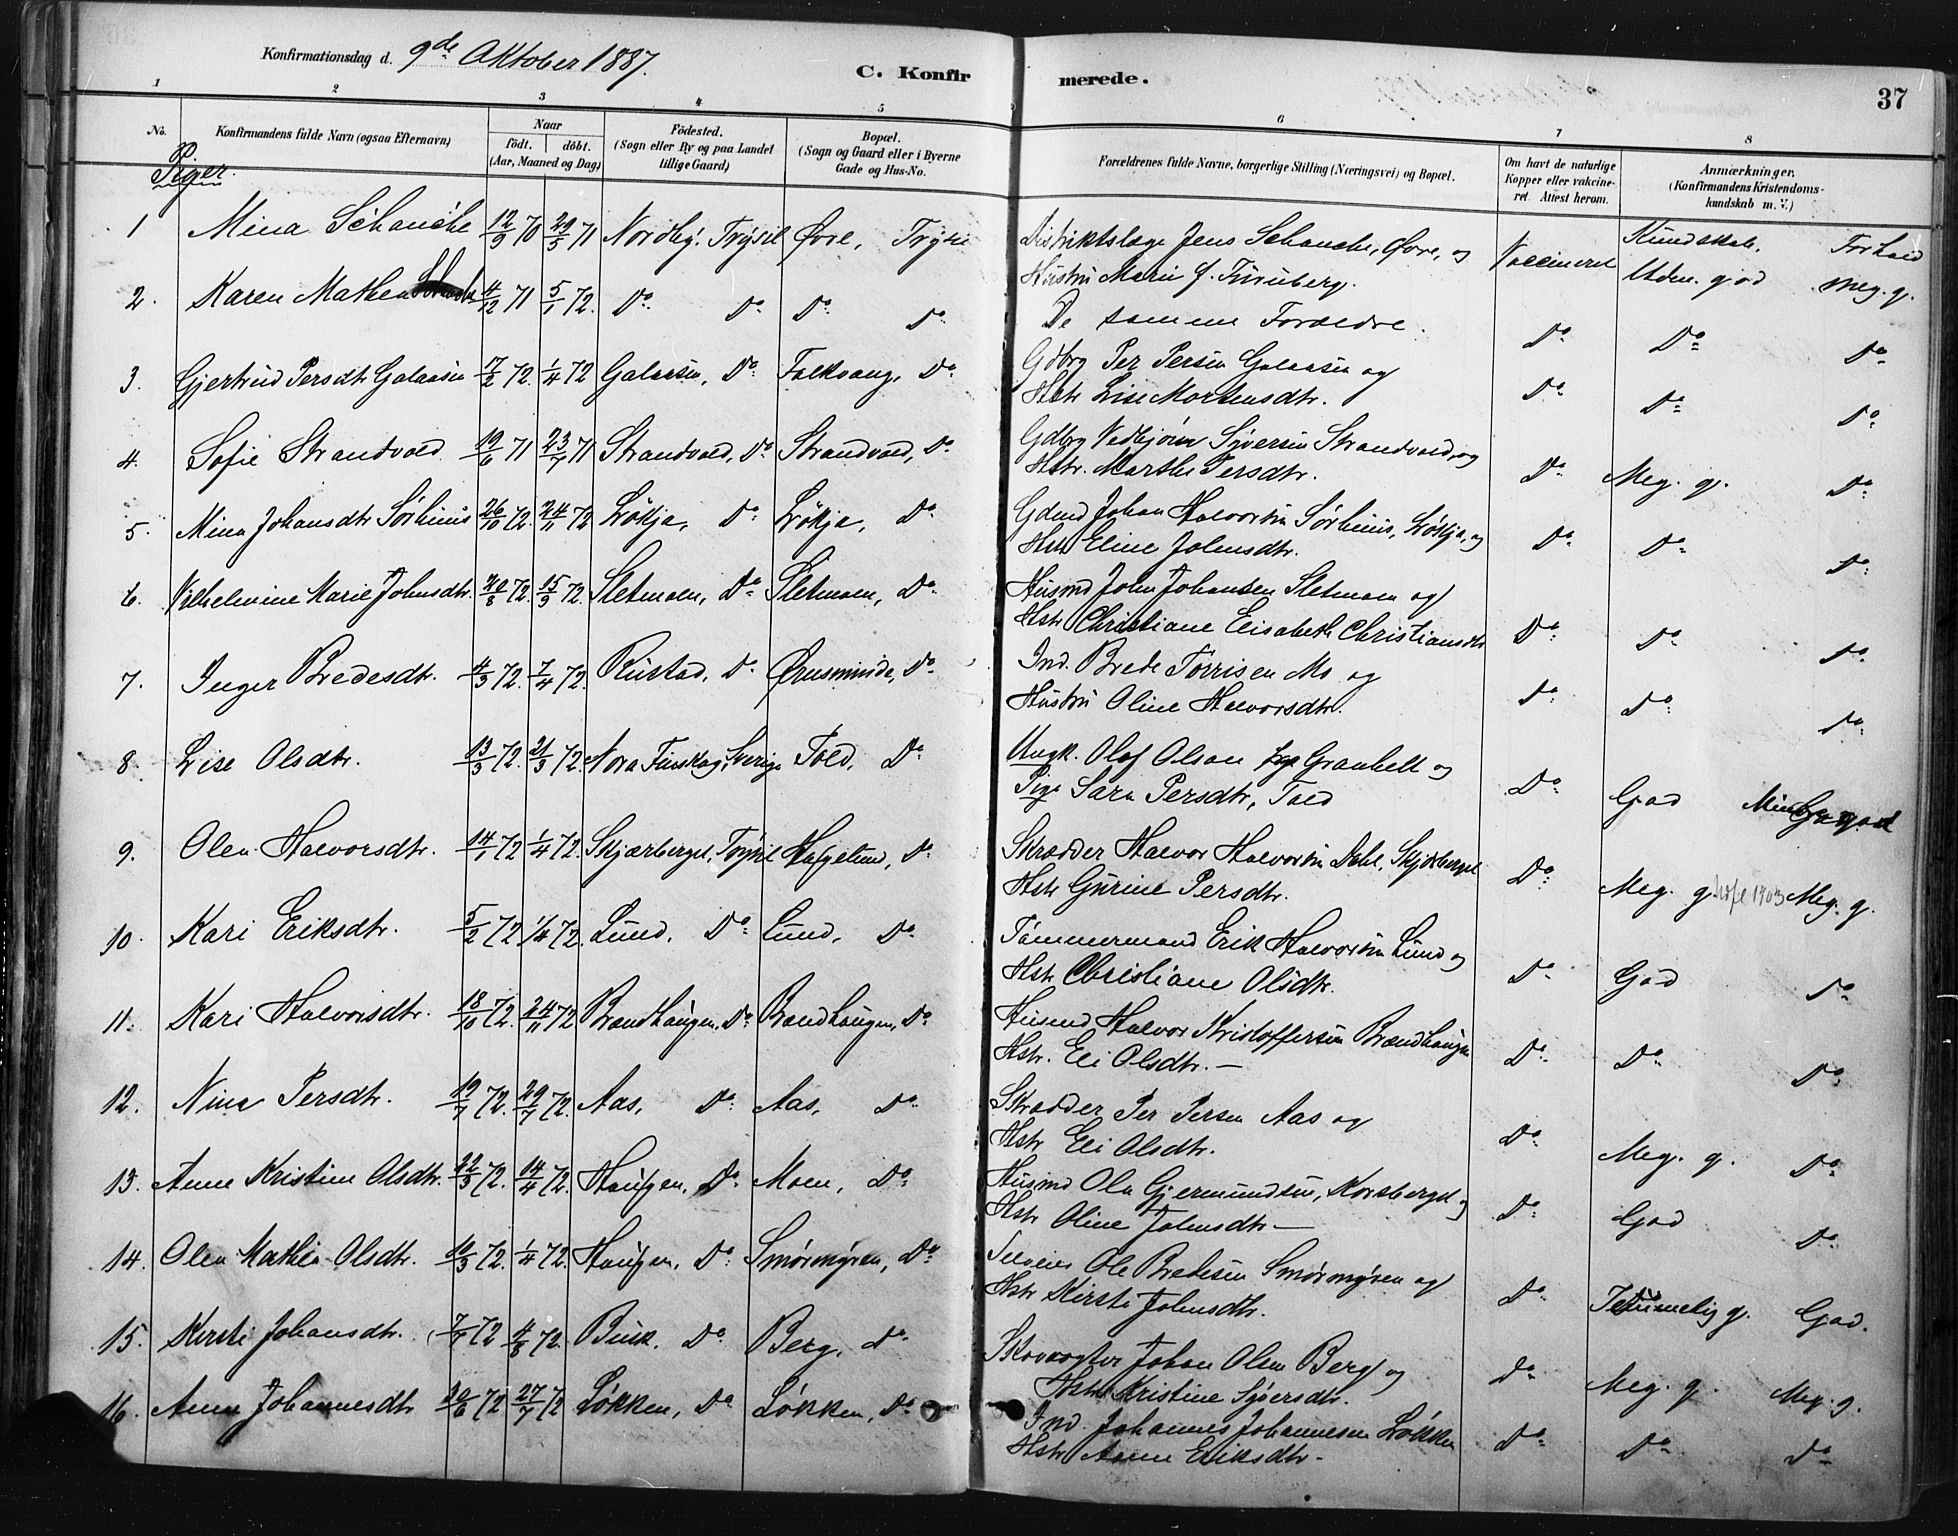 Konfirmationsdag d. 9de Oktober 1887.
C. Konfirmerede.
37
1 2 3 4 5 6 7 8
No.
Konfirmandens fulde Navn (ogsaa Efternavn)
Naar
födt. döbt.
(Aar, Maaned og Dag)
Födested.
(Sogn eller By og paa Landet
tillige Gaard)
Bopæl.
(Sogn og Gaard eller i Byerne
Gade og Hus-No.
Forældrenes fulde Navne, borgerlige Stilling (Næringsvei) og Bopæl.
Om havt de naturlige
Kopper eller vakcine-
ret. Attest herom.
Anmærkninger.
(Konfirmandens Kristendoms-
kundskab m. V.)
Piger.
Kundskab. Forhold
1 Mina Schanche 12/9 70 29/5 71 Nordby, Trysil Øvre, Trysil Distriktslæge Jens Schanche, Øvre, og Vaccineret Udm. god Meg. g.
Hustru Marie f.
2. Karen Mathea 4/12 71 5/1 72. Do Do Do Do De samme Forældre. Do Do Do
3. Gjertrud Persdtr Galaasen 7/2 72. 1/4 72 Galaasen, Do Falkvang, Do Gdbrg Per Persen Galaasen og Do Do Do
Hstr Lise Mortensdtr.
4. Sofie Strandvold 19/6 71 23/7 71 Strandvold, Do Strandvold, Do Gdbrg Vedbjörn Syversen Strandvold, og Do Meg. g. Do
Hstr. Marthe Persdtr.
5. Mina Johansdtr Sörhuus 26/10 72. 24/11 72 Lökja, Do Lökja, Do Gdmd Johan Halvorsen Sørhuus, Løkja, og Do Do Do
Hstr Eline Johnsdtr.
6. Vilhelmine Marie Johnsdtr. 20/8 72. 15/9 72. Sletmoen, Do Sletmoen, Do Husmd John Johansen Sletmoen og Do Do Do
Hstr Christiane Elisabeth Christiansdtr
7. Inger Bredesdtr. 4/3 72. 7/4 72. Rustad, Do Ørnsminde, Do Ind. Brede Torrisen Mo og Do Do Do
Hustru Oline Halvorsdtr.
8. Lise Olsdtr. 13/3 72. 21/3 72. Nora Finskog, Sverige Told, Do Ungk. Olof Olson Granbell og Do God
Pige Sara Persdtr, Told
9. Olea Halvorsdtr. 14/1 72 1/4 72. Skjærberget, Trysil Hafselund, Do Skrædder Halvor Halvorsen Dahl, Skjærberget Do Meg. g. Meg. g.
Hstr Gurine Persdtr.
10. Kari Eriksdtr. 5/2 72 1/4 72. Lund, Do Lund, Do Tömmermand Erik Halvorsen Lund og Do God Do
Hstr Christiane Olsdtr.
11. Kari Halvorsdtr. 18/10 72. 24/11 72 Brændhaugen, Do Brændhaugen, Do Husmd Halvor Kristoffersen Brændhaugen Do Do Do
Hstr. Eli Olsdtr. —
12. Nina Persdtr. 19/7 72. 29/7 72. Aas, Do Aas, Do Skrædder Per Persen Aas og Do Meg. g. Do
Hstr Eli Olsdtr.
13. Anne Kristine Olsdtr. 22/3 72. 14/4 72. Haugen, Do Moen, Do Husmd Ola Gjermundsen, Korsberget og Do God Do
Hstr Oline Johnsdtr —
14. Olea Mathea Olsdtr. 10/3 72. 1/4 72. Haugen, Do Smörmyren, Do Selveier Ole Bredesen Smörmyren og Do Temmelig g. God.
Hstr Kirsti Johnsdtr.
15. Kirsti Johansdtr. 7/7 72 4/8 72. Busk, Do Berg, Do Skovvogter Johan Olsen Berg og Do Meg. g. Meg. g.
Hstr Kristine Syversdtr.
16. Anna Johannesdtr 20/6 72 27/7 72 Løkken, Do Løkken, Do Ind. Johannes Johannesen Løkken Do Do Do
Hstr Anne Eriksdtr.